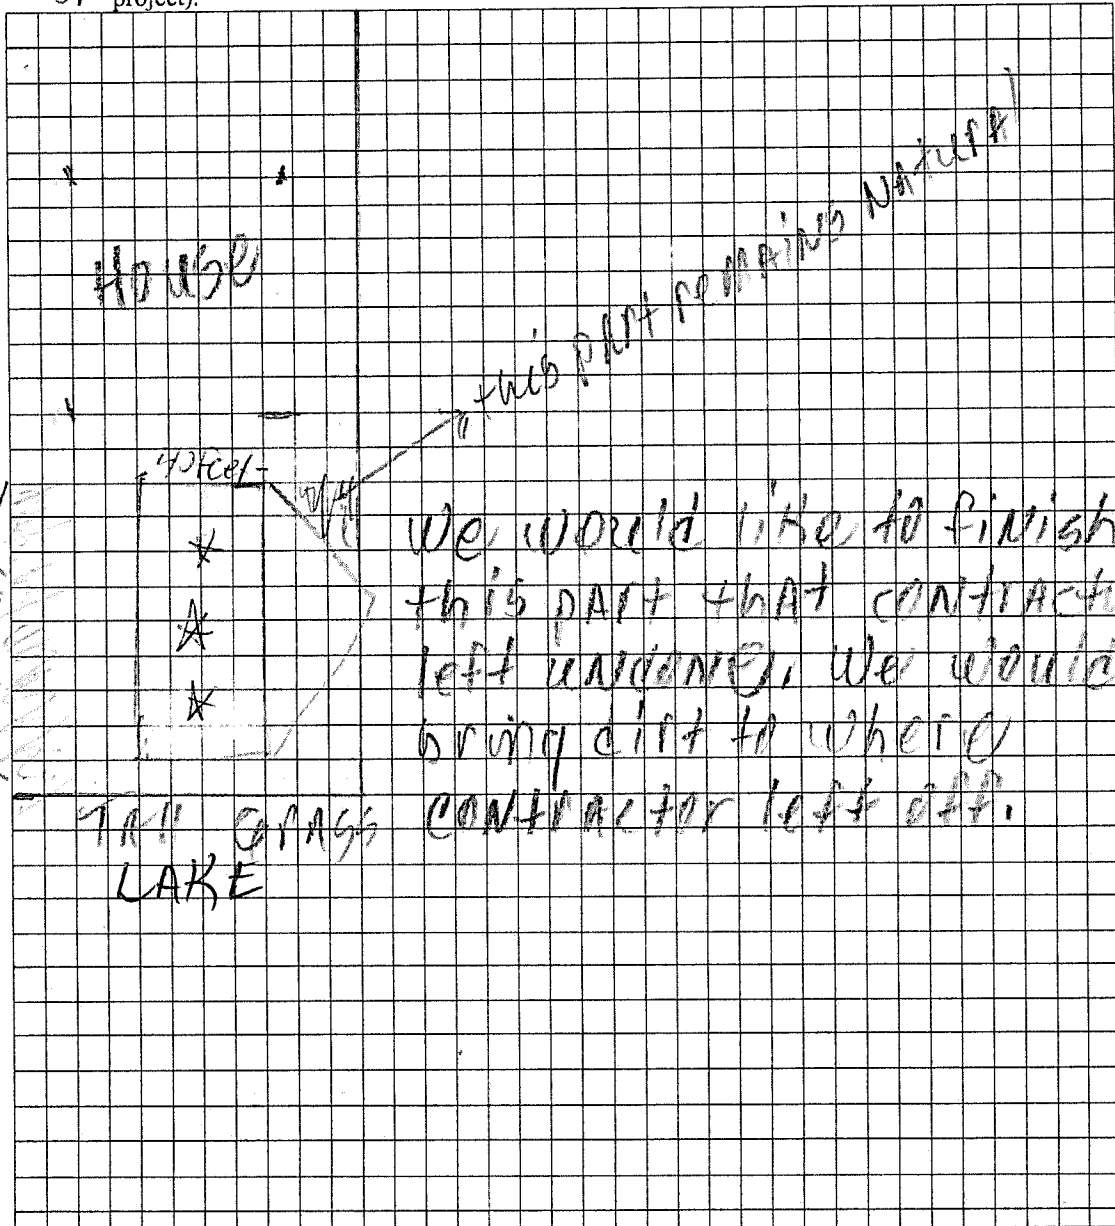 project).
House
"this part remains natural
40 Feet
We would like to finish
this part that contract
left undone. We would
bring dirt to where
contractor left off.
Tall grass
LAKE